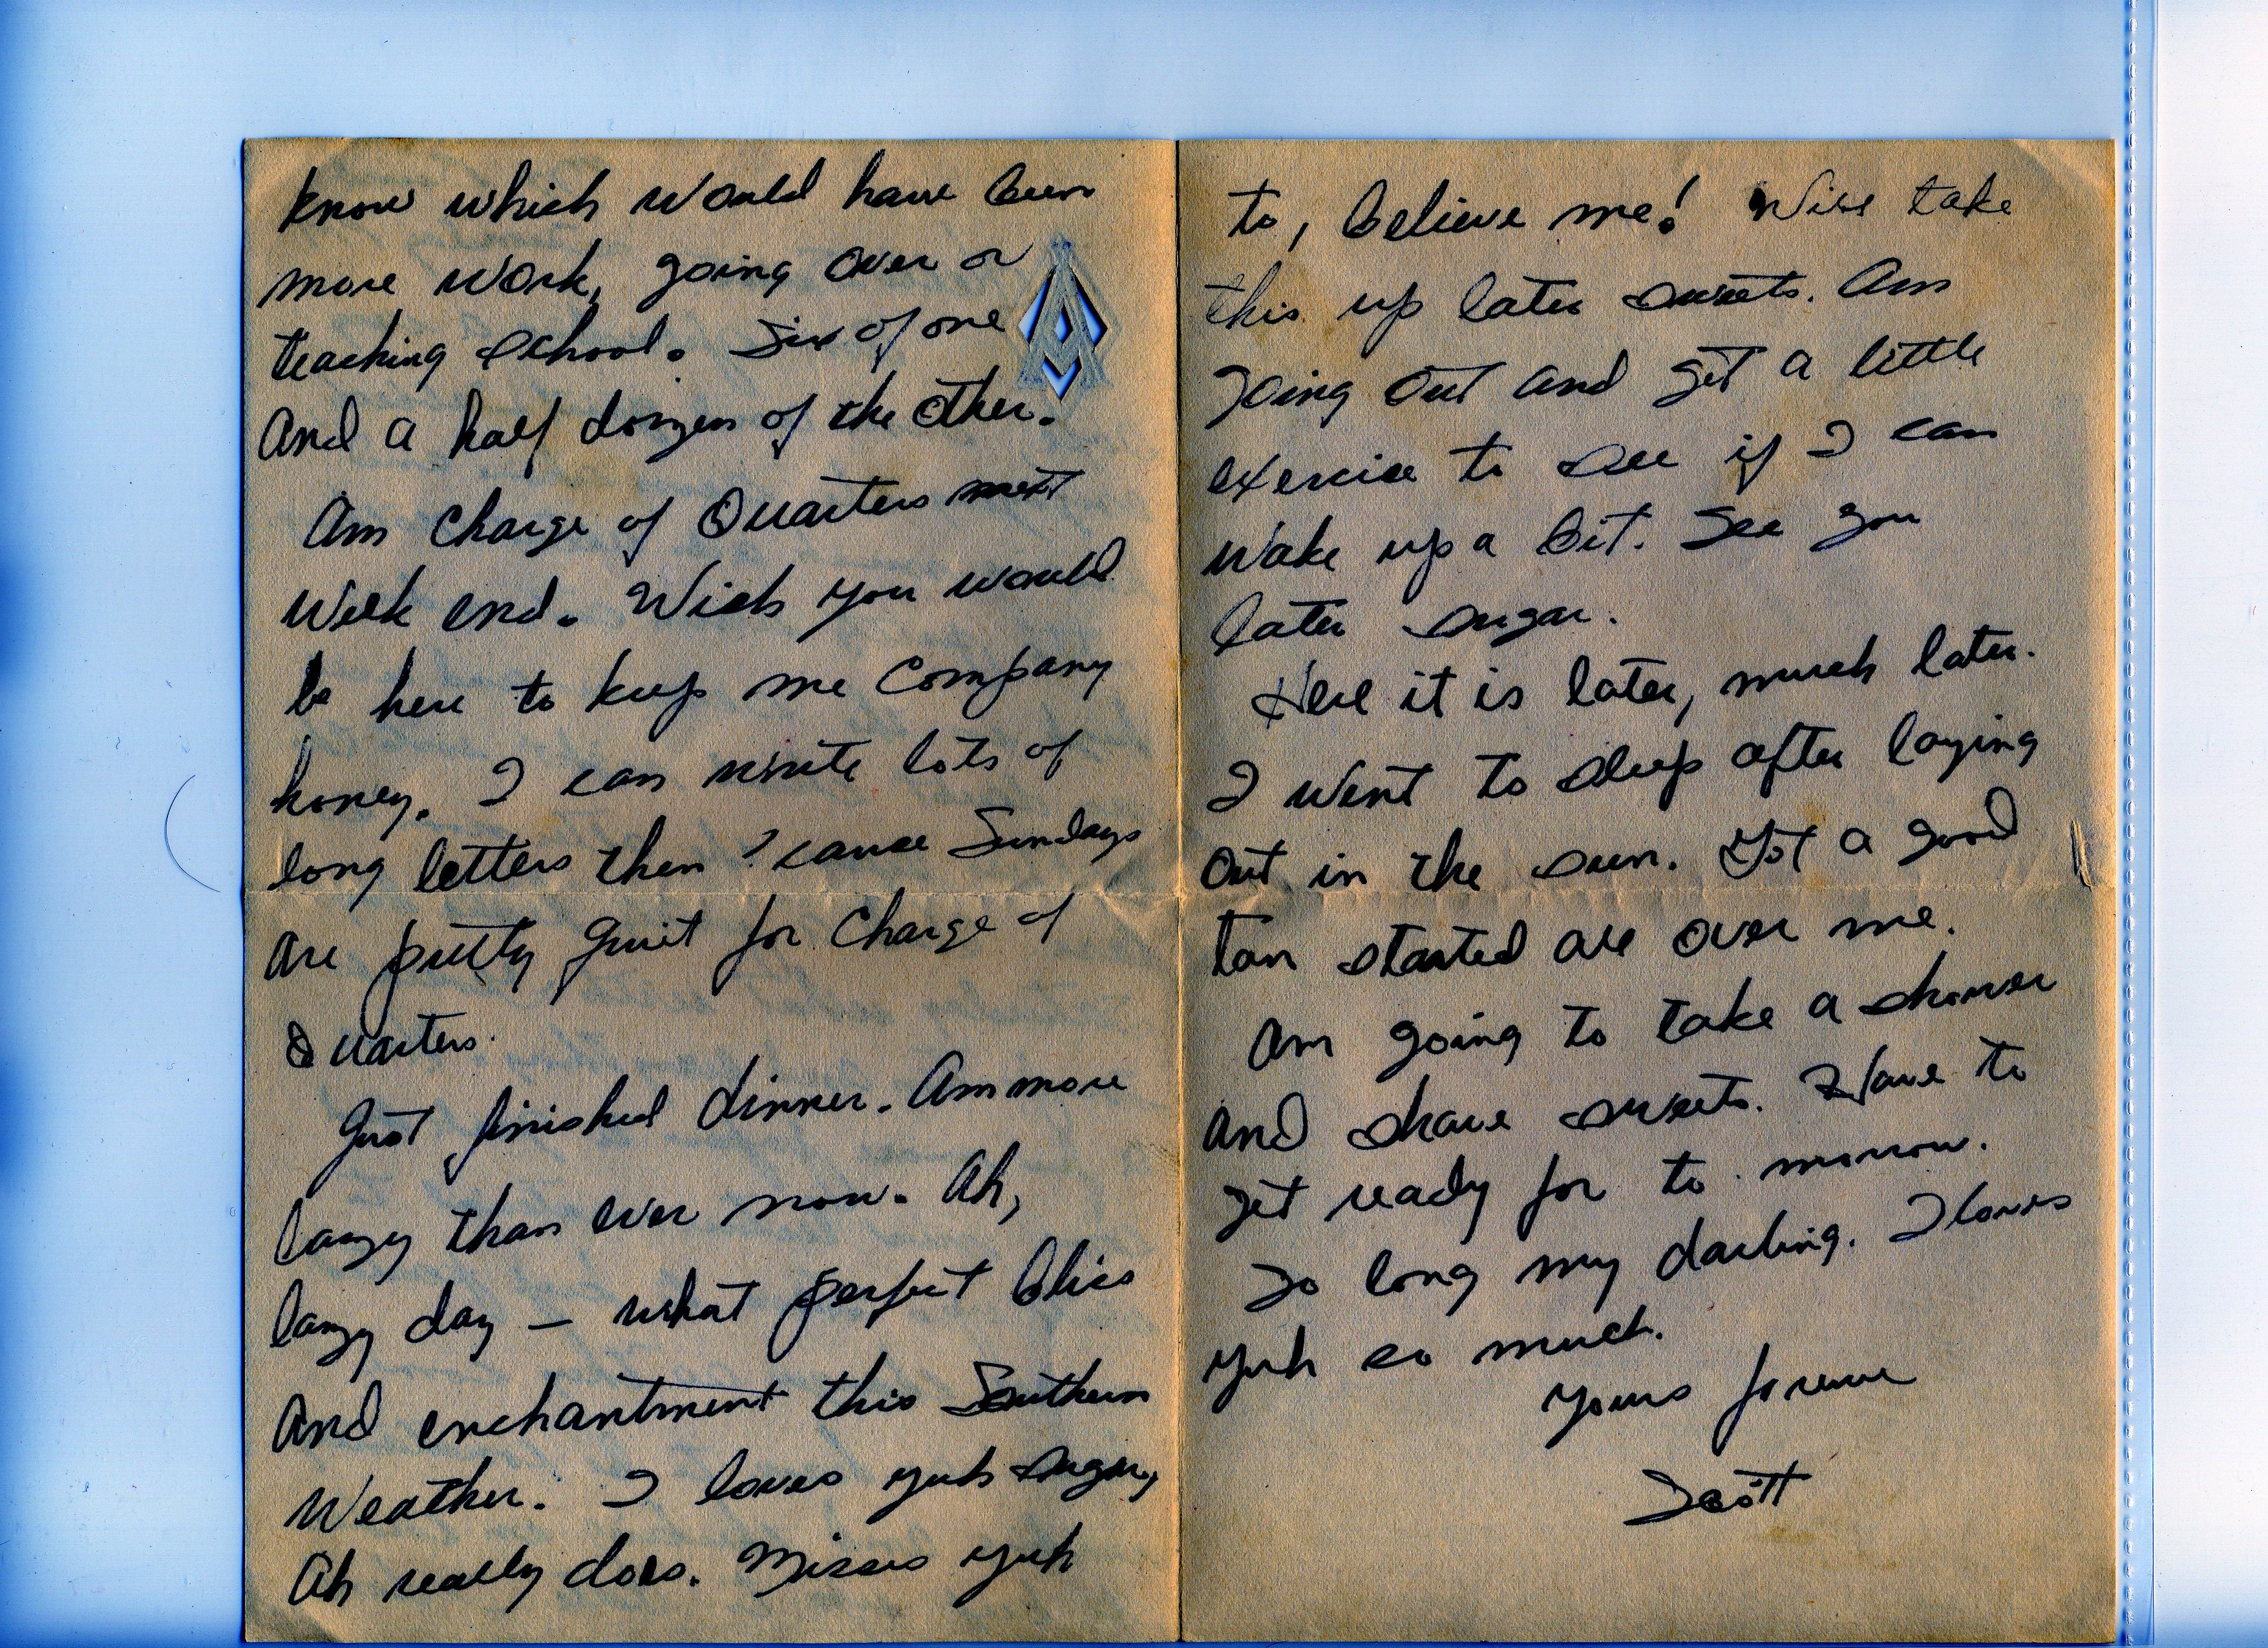 know which would have been
more work, going over or
teaching school. Six of one
And a half dozen of the other.
Am Charge of Quarters next
week end. Wish you would
be here to keep me company
honey. I can write lots of
long letters then 'cause Sundays
are pretty quiet for Charge of
Quarters.
Just finished dinner. Am more
lazy than ever now. Ah,
lazy day – what perfect bliss
And enchantment this Southern
Weather. I loves yuh sugar,
Ah really does. Misses yuh
to, believe me! Will take
this up later sweets. Am
going out and get a little
exercise to see if I can
wake up a bit. See you
later sugar.
Here it is later, much later.
I went to sleep after laying
out in the sun. Got a good
tan started all over me.
Am going to take a shower
And shave sweets. Have to
get ready for to morrow.
So long my darling. I loves
yuh so much.
Yours forever
Scott